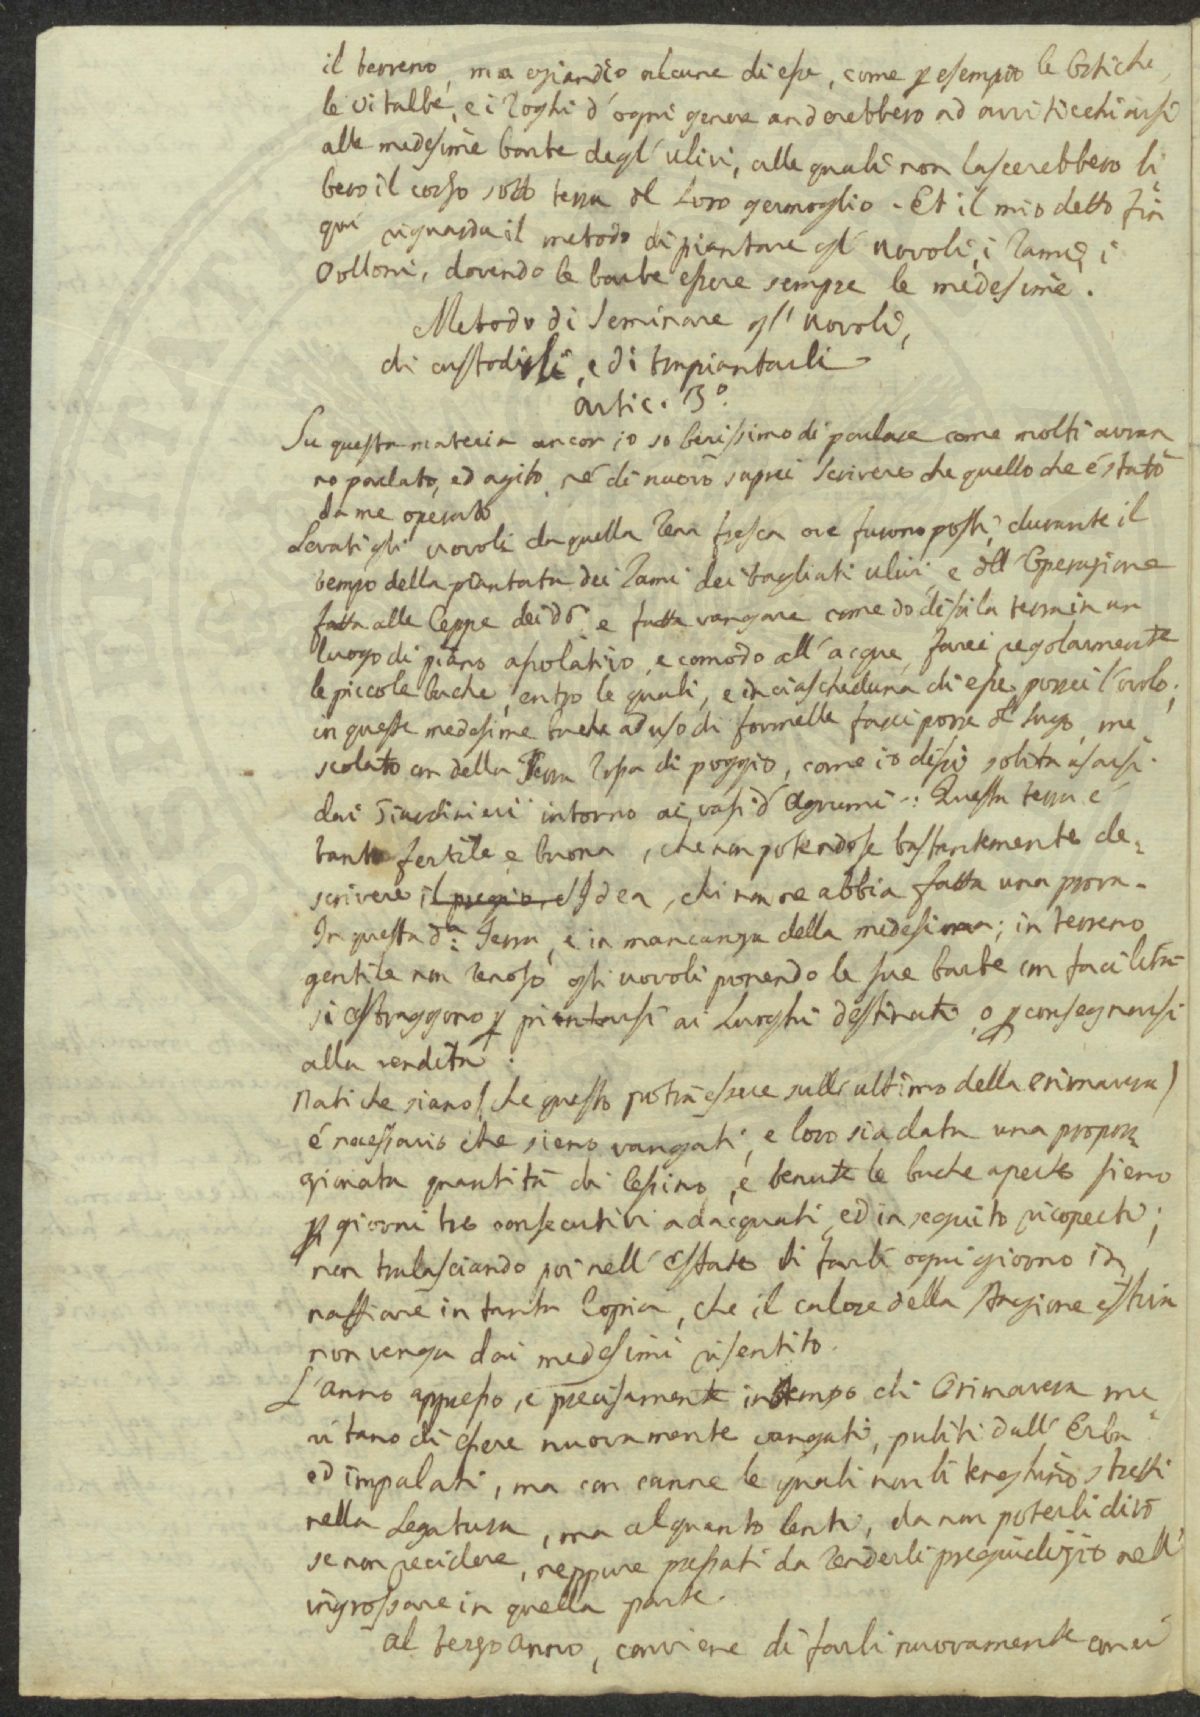 il terreno, ma eziandio alcune di esse, come p esempio le Ortiche,
le vitalbe, e i Roghi d'ogni genere anderebbero ad avviticchiarsi
alle medesime barbe degl'ulivi, alle quali non lascerebbero li
bero il corso sotto terra ed loro germoglio. Et il mio detto fin
qui riguarda il metodo di piantare gl' uovoli, i Rami, i
Polloni, dovendo le barbe essere sempre le medesime.
Metodo di Seminare gl' uovoli,
di custodirli, e di trapiantarli
Artic. 3º.
Su questa materia ancor io so benissimo di parlare come molti avran
no parlato, ed agito, né di nuovo saprei scrivere che quello che é stato
da me operato
Levati gli uovoli da quella Terra fresca ove furono posti, durante il
tempo della piantata dei Rami dei tagliati ulivi, e dell'Operazione
fatta alle Ceppe dei dᵢ, e fatta vangare come dissi la terra in un
luogo di piano asolativo, e comodo all'acqua, farei regolarmente
le piccole buche, entro le quali, e in ciascheduna di esse, porrei l'ovolo;
in queste medesime buche ad uso di formelle farei porre del Sugo me
scolato con della Terra Rossa di poggio, come io dissi solita usarsi
dai Giardinieri intorno ai vasi d'Agrumi: Questa terra é
tanto fertile e buona, che non potendose bastantemente de=
scrivere il pregio e Idea, chi non ne abbia fatta una prova.
In questa dᵃ: Terra, e in mancanza della medesima; in terreno
gentile non Renoso gli uovoli ponendo le sue barbe con facilità
si estraggono p piantarsi ai Luoghi destinati, o p consegnarsi
alla vendita.
Nati che siano (che questo potrà essere sull'ultimo della Primavera)
é necessario che sieno vangati, e loro sia data una propor
zionata quantità di Cessino, e tenute le buche aperte sieno
p giorni tre consecutivi adacquati, ed in seguito ricoperti;
non tralasciando poi nell'Estate di farli ogni giorno in
naffiare in tanta Copia, che il calore della Stagione estiva
non venga dai medesimi risentito.
L'anno appresso, e precisamente in tempo di Primavera me
ritano di essere nuovamente vangati, puliti dall'Erba
ed impalati, ma con canne le quali non li tenghino stretti
nella Legatura, ma alquanto lenti, da non poterli dirò
se non recidere, neppure pressati da Renderli pregiudizio nell'
ingrossare in quella parte.
Al terzo Anno, conviene di farli nuovamente conci